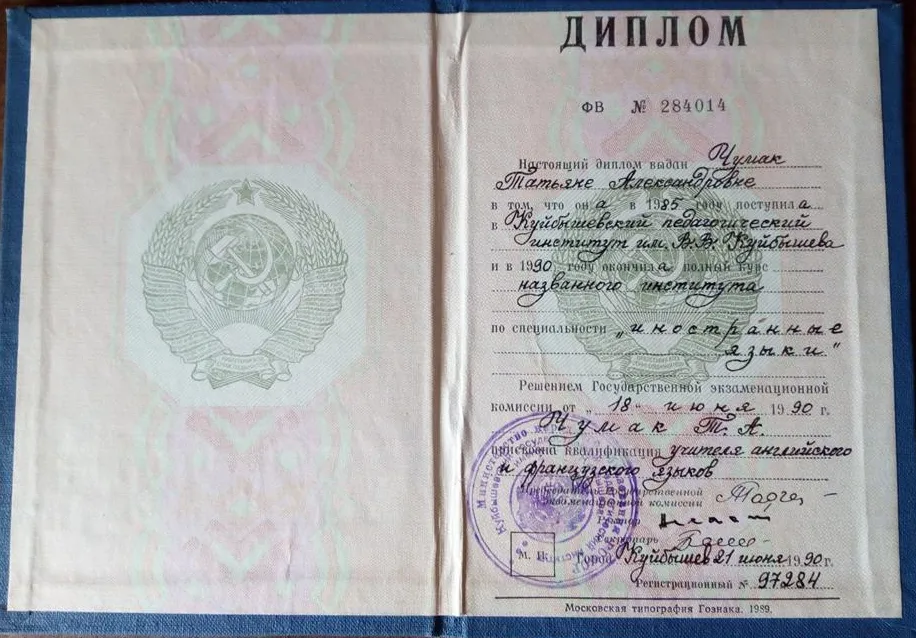 ДИПЛОМ
ФВ № 284014
Настоящий диплом выдан Чумак
Татьяне Александровне
в том, что она в 1985 году поступила
в Куйбышевский педагогический
институт им. В.В. Куйбышева
и в 1990 году окончила полный курс
названного института
по специальности „иностранные
языки"
Решением Государственной экзаменационной
комиссии от „18" июня 1990 г.
Чумак Т. А.
присвоена квалификация учителя английского
и французского языков
Председатель Государственной
экзаменационной комиссии
Ректор
Секретарь
М. П. Город Куйбышев 21 июня 1990 г.
Регистрационный № 97284
Московская типография Гознака. 1989.
Министерство